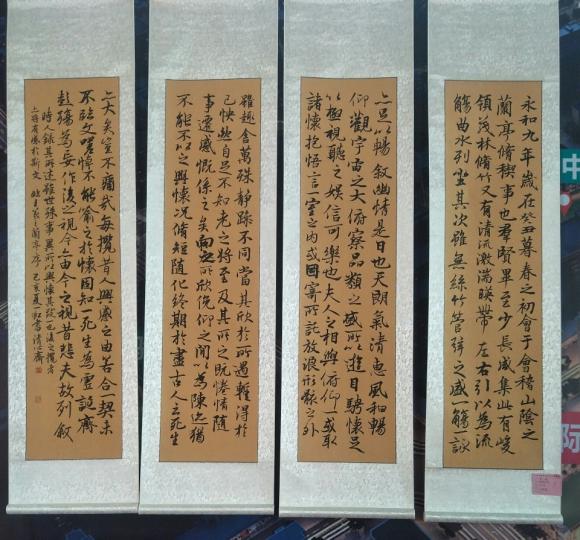 永和九年歲在癸丑暮春之初會于會稽山陰之
蘭亭脩稧事也羣賢畢至少長咸集此有峻
領茂林脩竹又有清流激湍暎帶左右引以為流
觴曲水列坐其次雖無絲竹管弦之盛一觴一詠
亦足以暢叙幽情是日也天朗氣清惠風和暢
仰觀宇宙之大俯察品類之盛所以遊目騁懷足
以極視聽之娛信可樂也夫人之相與俯仰一世或取
諸懷抱悟言一室之内或因寄所託放浪形骸之外
雖趣舍萬殊静躁不同當其欣於所遇暫得於
己快然自足不知老之將至及其所之既惓情隨
事遷感慨係之矣向之所欣俛仰之閒以為陳迹猶
不能不以之興懷况脩短隨化終期於盡古人云死生
亦大矣豈不痛哉每攬昔人興感之由若合一契未
不臨文嗟悼不能喻之於懷固知一死生為虛誕齊
彭殤為妄作後之視今亦由今之視昔悲夫故列叙
時人録其所述雖世殊事異所以興懷其致一也後之攬者
亦將有感於斯文 王羲之蘭亭序己亥夏 書
中
际